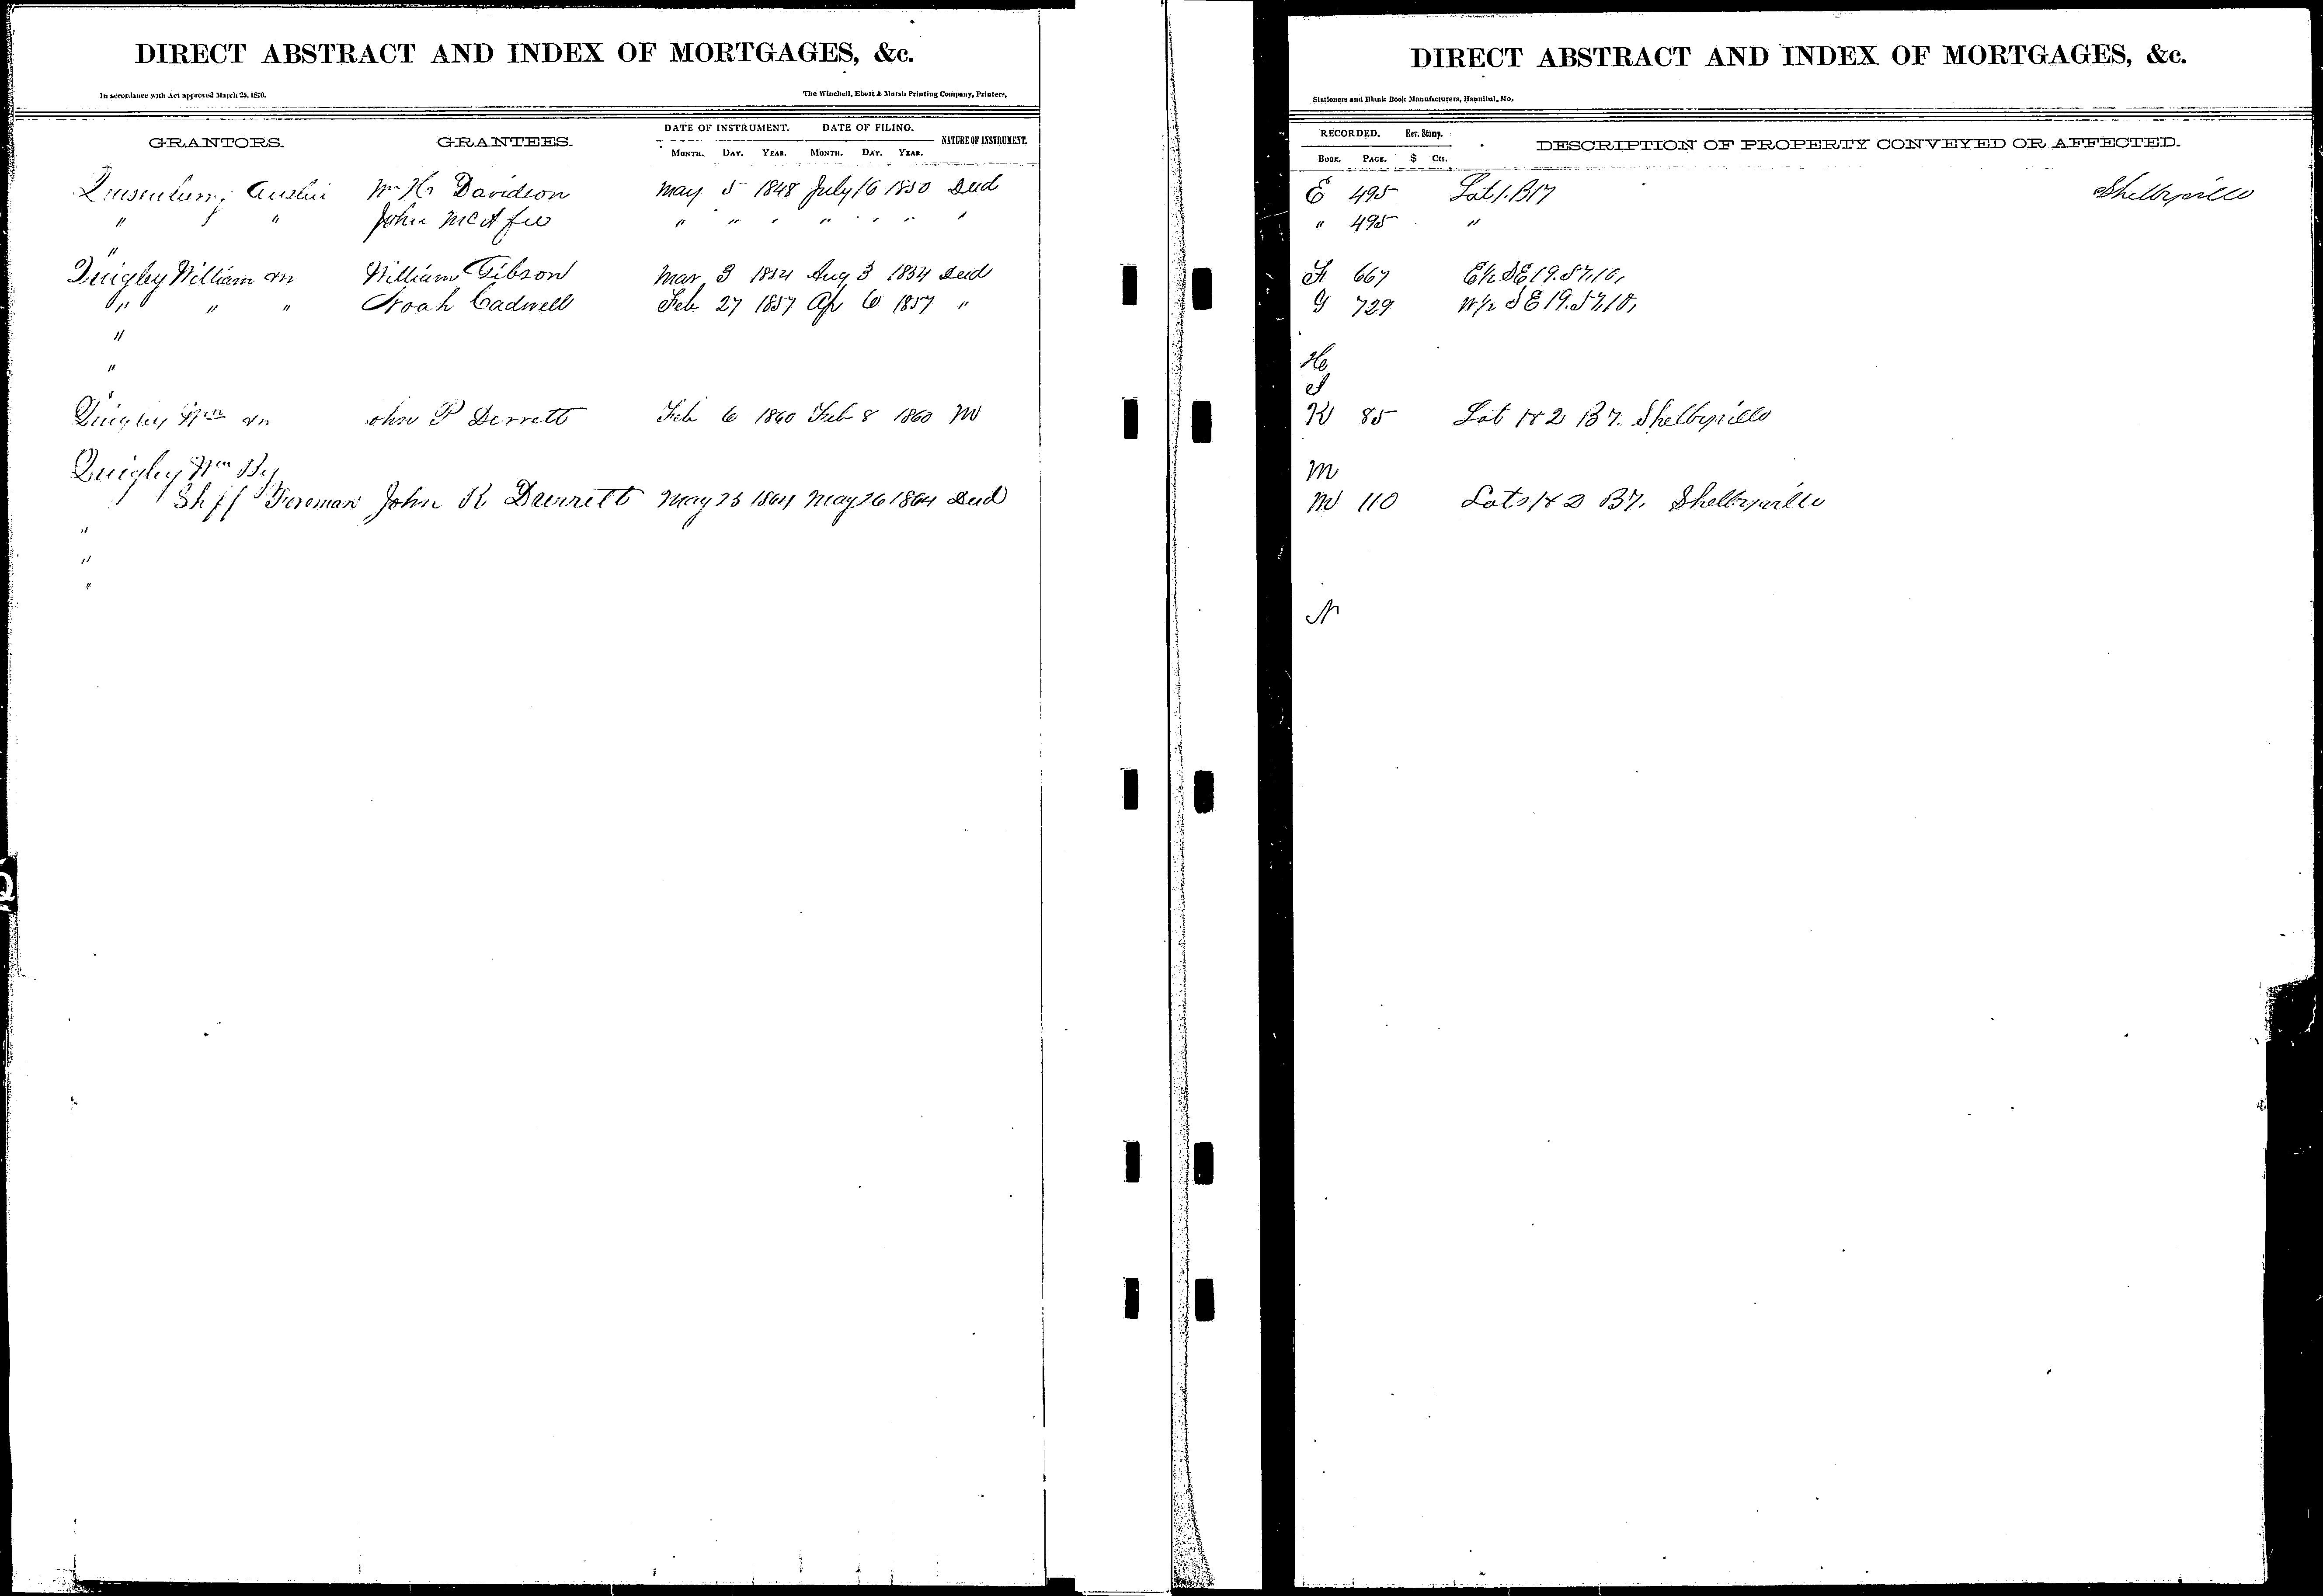 DIRECT ABSTRACT AND INDEX OF MORTGAGES, &c.
In accordance with Act approved March 25, 1870. The Winchell, Ebert & Marsh Printing Company, Printers,
GRANTORS. GRANTEES. DATE OF INSTRUMENT. DATE OF FILING. NATURE OF INSTRUMENT.
MONTH. DAY. YEAR. MONTH. DAY. YEAR.
Quisenbury, Austin Wm H. Davidson May 5 1848 July 16 1850 Deed
" " John McAfee " " " " " " "
"
Quigley William &n William Gibson Mar 3 1854 Aug 3 1854 Deed
" " " Noah Cadwell Feb 27 1857 Ap 6 1857 "
"
"
Quigley Wm &n John P Derrett Feb 6 1860 Feb 8 1860 M
Quigley Wm By
Shff Foreman John R Durrett May 25 1864 May 26 1864 Deed
"
"
"
Q
DIRECT ABSTRACT AND INDEX OF MORTGAGES, &c.
Stationers and Blank Book Manufacturers, Hannibal, Mo.
RECORDED. Rev. Stamp. DESCRIPTION OF PROPERTY CONVEYED OR AFFECTED.
BOOK. PAGE. $ Cts.
E 495 Lot 1. B17 Shelbyville
" 495 "
F 667 E½ SE 19.57.10,
G 729 W½ SE 19.57.10,
H
I
K 85 Lot 1 & 2 B7. Shelbyville
M
M 110 Lots 1 & 2 B7. Shelbyville
N